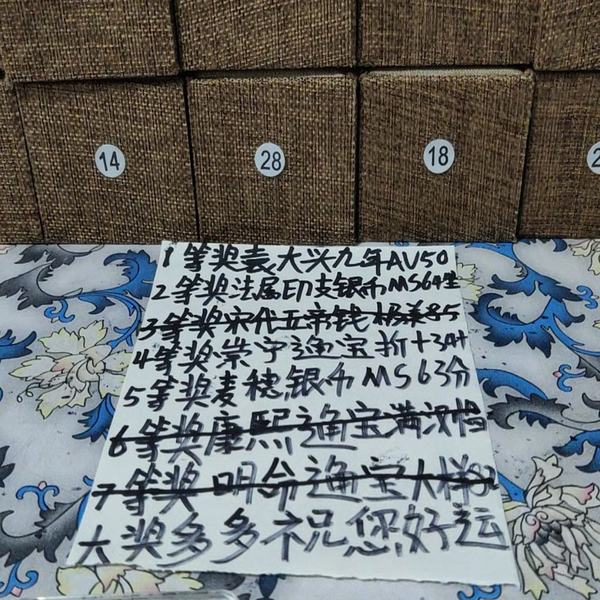 14 28 18 2
1等奖袁大头九年AU50
2等奖法属印支银币MS64
3等奖宋代五帝钱 极美85
4等奖崇宁通宝折十3
5等奖麦穗银币MS63分
6等奖康熙通宝满汉
7等奖明命通宝大样
大奖多多祝您好运